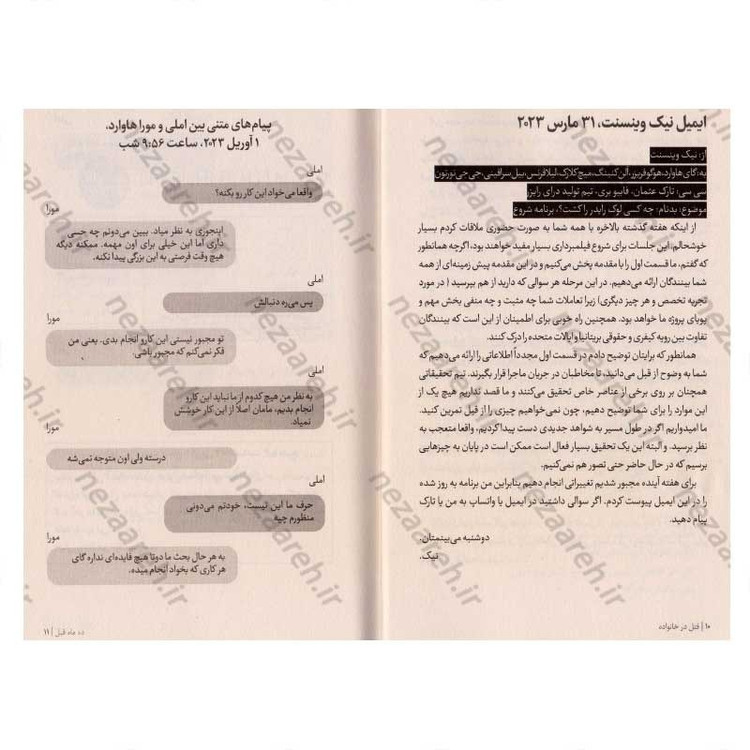 ایمیل نیک وینسنت، ۳۱ مارس ۲۰۲۳
از: نیک وینسنت
به: گای هاوارد، هوگو فریزر، آلن کنینگ، میچ کلارک، لیلا فرنس، بیل سرافینی، جی جی نورتون
سی سی: تارک عثمان، فابیو بری، تیم تولید درای رایزر
موضوع: بدنام: چه کسی لوک رایدر را کشت؟، برنامه شروع
از اینکه هفته گذشته بالاخره با همه شما به صورت حضوری ملاقات کردم بسیار
خوشحالم. این جلسات برای شروع فیلمبرداری بسیار مفید خواهند بود، اگرچه همانطور
که گفتم، ما قسمت اول را با مقدمه پخش می‌کنیم و در این مقدمه پیش زمینه‌ای از همه
شما بینندگان ارائه می‌دهیم. در این مرحله هر سوالی که دارید از هم بپرسید (در مورد
تجربه تخصص و هر چیز دیگری) زیرا تعاملات شما چه مثبت و چه منفی بخش مهم و
پویای پروژه ما خواهد بود. همچنین راه خوبی برای اطمینان از این است که بینندگان
تفاوت بین رویه کیفری و حقوقی بریتانیا و ایالات متحده را درک کنند.
همانطور که برایتان توضیح دادم در قسمت اول مجدداً اطلاعاتی را ارائه می‌دهیم که
شما به وضوح از قبل می‌دانید، تا مخاطبان در جریان ماجرا قرار بگیرند. تیم تحقیقاتی
همچنان بر روی برخی از عناصر خاص تحقیق می‌کنند و ما قصد نداریم هیچ یک از
این موارد را برای شما توضیح دهیم، چون نمی‌خواهیم چیزی را از قبل تمرین کنید.
ما امیدواریم اگر در طول مسیر به شواهد جدیدی دست پیدا کردیم، واقعا متعجب به
نظر برسید. و البته این یک تحقیق بسیار فعال است ممکن است در پایان به چیزهایی
برسیم که در حال حاضر حتی تصور هم نمی‌کنیم.
برای هفته آینده مجبور شدیم تغییراتی انجام دهیم بنابراین من برنامه به روز شده
را در این ایمیل پیوست کردم. اگر سوالی داشتید در ایمیل یا واتساپ به من یا تارک
پیام دهید.
دوشنبه می‌بینمتان.
نیک.
۱۰ | قتل در خانواده
پیام‌های متنی بین املی و مورا هاوارد،
۱ آوریل ۲۰۲۳، ساعت ۹:۵۶ شب
املی
واقعا می‌خواد این کار رو بکنه؟
مورا
اینجوری به نظر میاد. ببین می‌دونم چه حسی
داری اما این خیلی برای اون مهمه. ممکنه دیگه
هیچ وقت فرصتی به این بزرگی پیدا نکنه.
املی
پس می‌ره دنبالش
مورا
تو مجبور نیستی این کارو انجام بدی. یعنی من
فکر نمی‌کنم که مجبور باشی.
املی
به نظر من هیچ کدوم از ما نباید این کارو
انجام بدیم، مامان اصلاً از این کار خوشش
نمیاد.
مورا
درسته ولی اون متوجه نمی‌شه
املی
حرف ما این نیست، خودتم می‌دونی
منظورم چیه
مورا
به هر حال بحث ما دوتا هیچ فایده‌ای نداره گای
هر کاری که بخواد انجام میده.
ده ماه قبل | ۱۱
nezaareh.ir